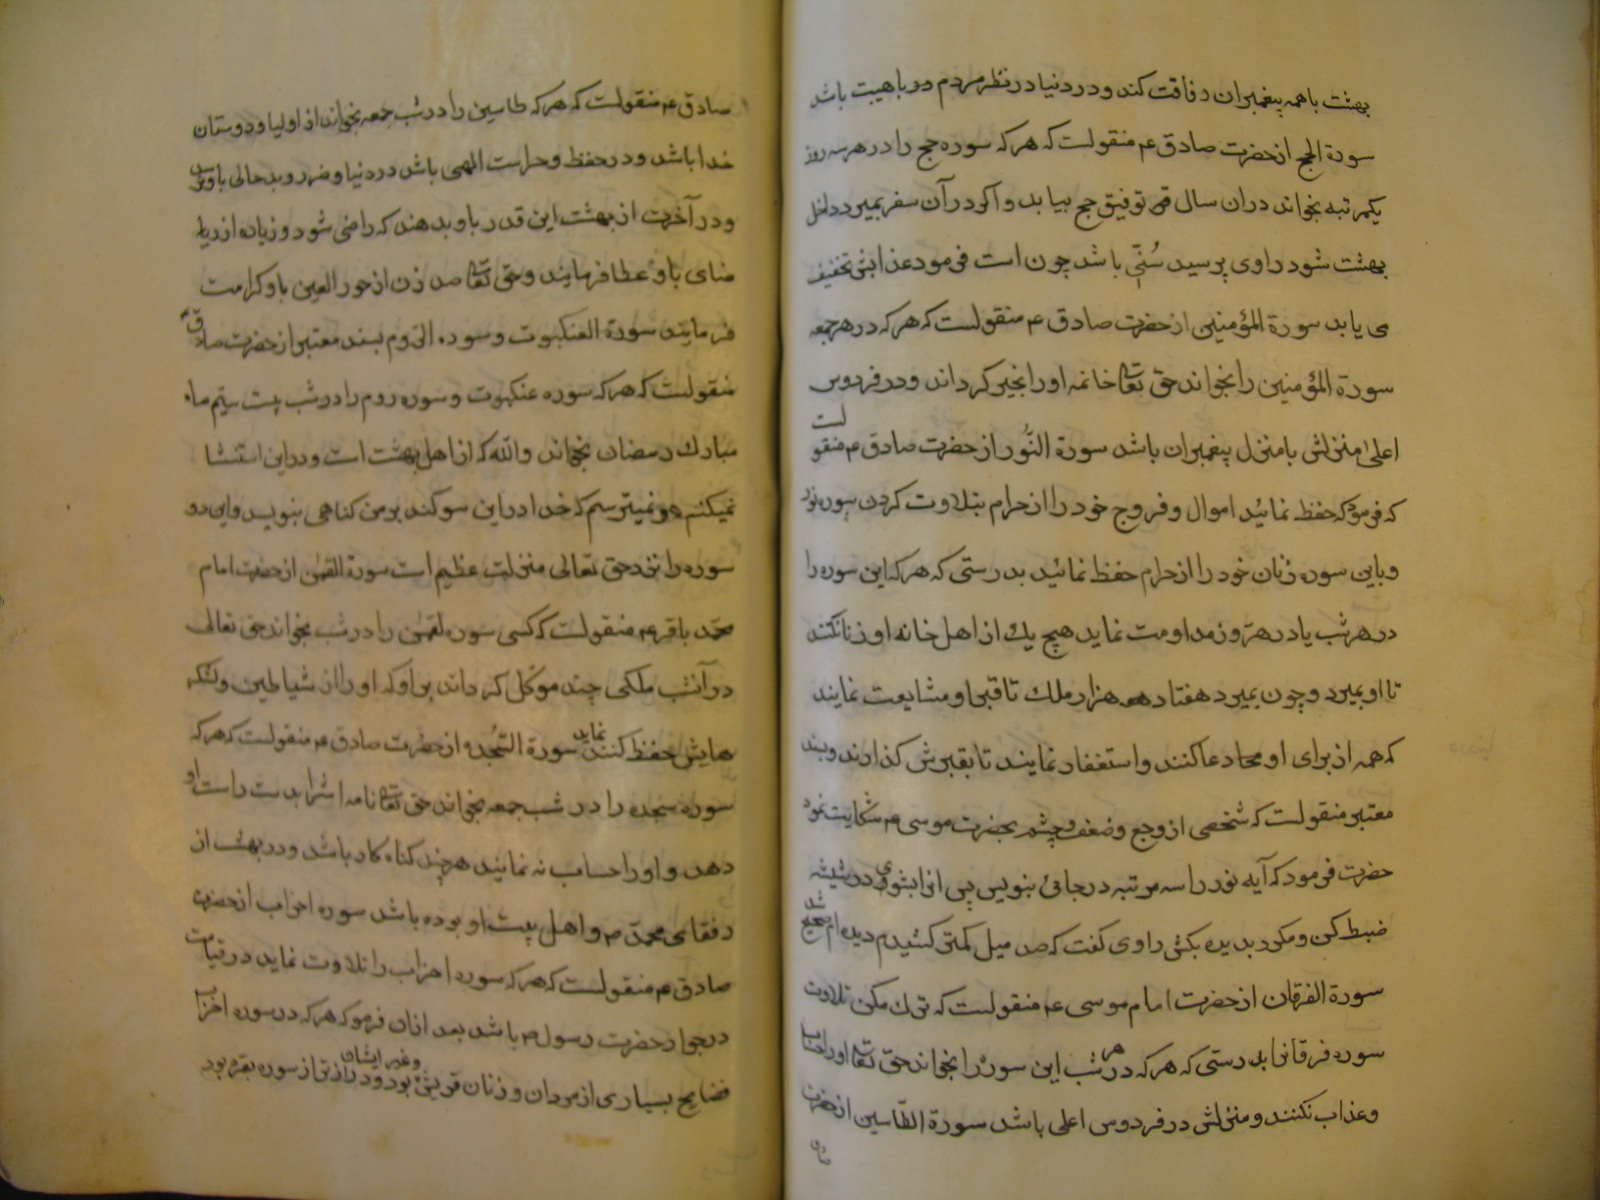 بهشت باهمه پیغمبران رفاقت کند ودر دنیا در نظر مردم مرد باهیبت باشد
سورة الحج ازحضرت صادق عم منقولست که هرکه سوره حج را در هرسه روز
یکمرتبه بخواند دران سال قم توفیق حج بیابد واکر درآن سفر بمیرد داخل
بهشت شود راوی پرسید سُنّی باشد چون است فرمود عذابش تخفیف
می یابد سورة المؤمنین ازحضرت صادق عم منقولست که هرکه در هر جمعه
سورة المؤمنین را بخواند حق تعا خاتمه اورا بخیر کرداند ودر فردوس
اعلیٰ منزلش بامنزل پیغمبران باشد سورة النّور ازحضرت صادق عم منقولست
که فرمود که حفظ نمائید اموال وفروج خود را از حرام بتلاوت کردن سوره نور
وباین سوره زنان خود را ازحرام حفظ نمائید بدرستی که هرکه این سوره را
در هرشب یا در هر روز مداومت نماید هیچ یك از اهل خانه او زنا نکنند
تا او بمیرد وچون بمیرد هفتاد هزار ملك تا قبر او مشایعت نمایند
که همه از برای او دعا کنند واستغفار نمایند تا بقبرش کذارند وبسند
معتبر منقولست که شخصی از وجع وضعف چشم بحضرت موسی عم شکایت نمود
حضرت فرمود که آیه نور را سه مرتبه در جائی بنویس پس انرا بشوی ودر شیشه
ضبط کن ومکرر بدیده بکش راوی کفت که صد میل کمتر کشیدم دیده ام صحیح شد
سورة الفرقان ازحضرت امام موسی عم منقولست که ترك مکن تلاوت
سوره فرقانرا بدرستی که هرکه در هر شب این سوره را بخواند حق تعا اورا حساب
وعذاب نکنند ومنزلش در فردوس اعلی باشد سورة الطّاسین ازحضرت
صادق
صادق عم منقولست که هرکه طاسین را در شب جمعه بخواند از اولیا ودوستان
خدا باشد ودر حفظ وحراست الهی باشد در دنیا وضرر وبدحالی باو نرسد
ودر آخرت از بهشت این قدر باو بدهند که راضی شود وزیاده از
ضای باو عطا فرمایند وحق تعا صد زن از حور العین باو کرامت
فرمایند سورة العنکبوت وسوره الروم بسند معتبر ازحضرت صادق عم
منقولست که هرکه سوره عنکبوت وسوره روم را در شب بیست سیّم ماه
مبارك رمضان بخواند والله که از اهل بهشت است ودر این استثنا
نمیکنم ونمیترسم که خدا در این سوکند بر من کناهی بنویسد واین دو
سوره را نزد حق تعالی منزلت عظیم است سورة القمن ازحضرت امام
محمّد باقر عم منقولست که کسی سوره لقمن را در شب بخواند حق تعالی
در آنشب ملکی چند موکّل کرداند بر او که اورا از شیاطین ولشکر
هایش حفظ کنند نماید سورة السّجده ازحضرت صادق عم منقولست که هرکه
سوره سجده را در شب جمعه بخواند حق تعا نامه اشرا بدست راست او
دهد واورا حساب نه نمایند هرچند کناه کار باشد ودر بهشت از
رفقای محمّد ص واهل بیت او بوده باشد سوره احزاب ازحضرت
صادق عم منقولست که هرکه سوره احزاب را تلاوت نماید در قیامت
در جوار حضرت رسول ص باشد بعد ازان فرمو که هرکه در سوره احزاب
فضایح بسیاری از مردان وزنان قریش وغیر ایشان بود ودرازتر از سوره بقره بود